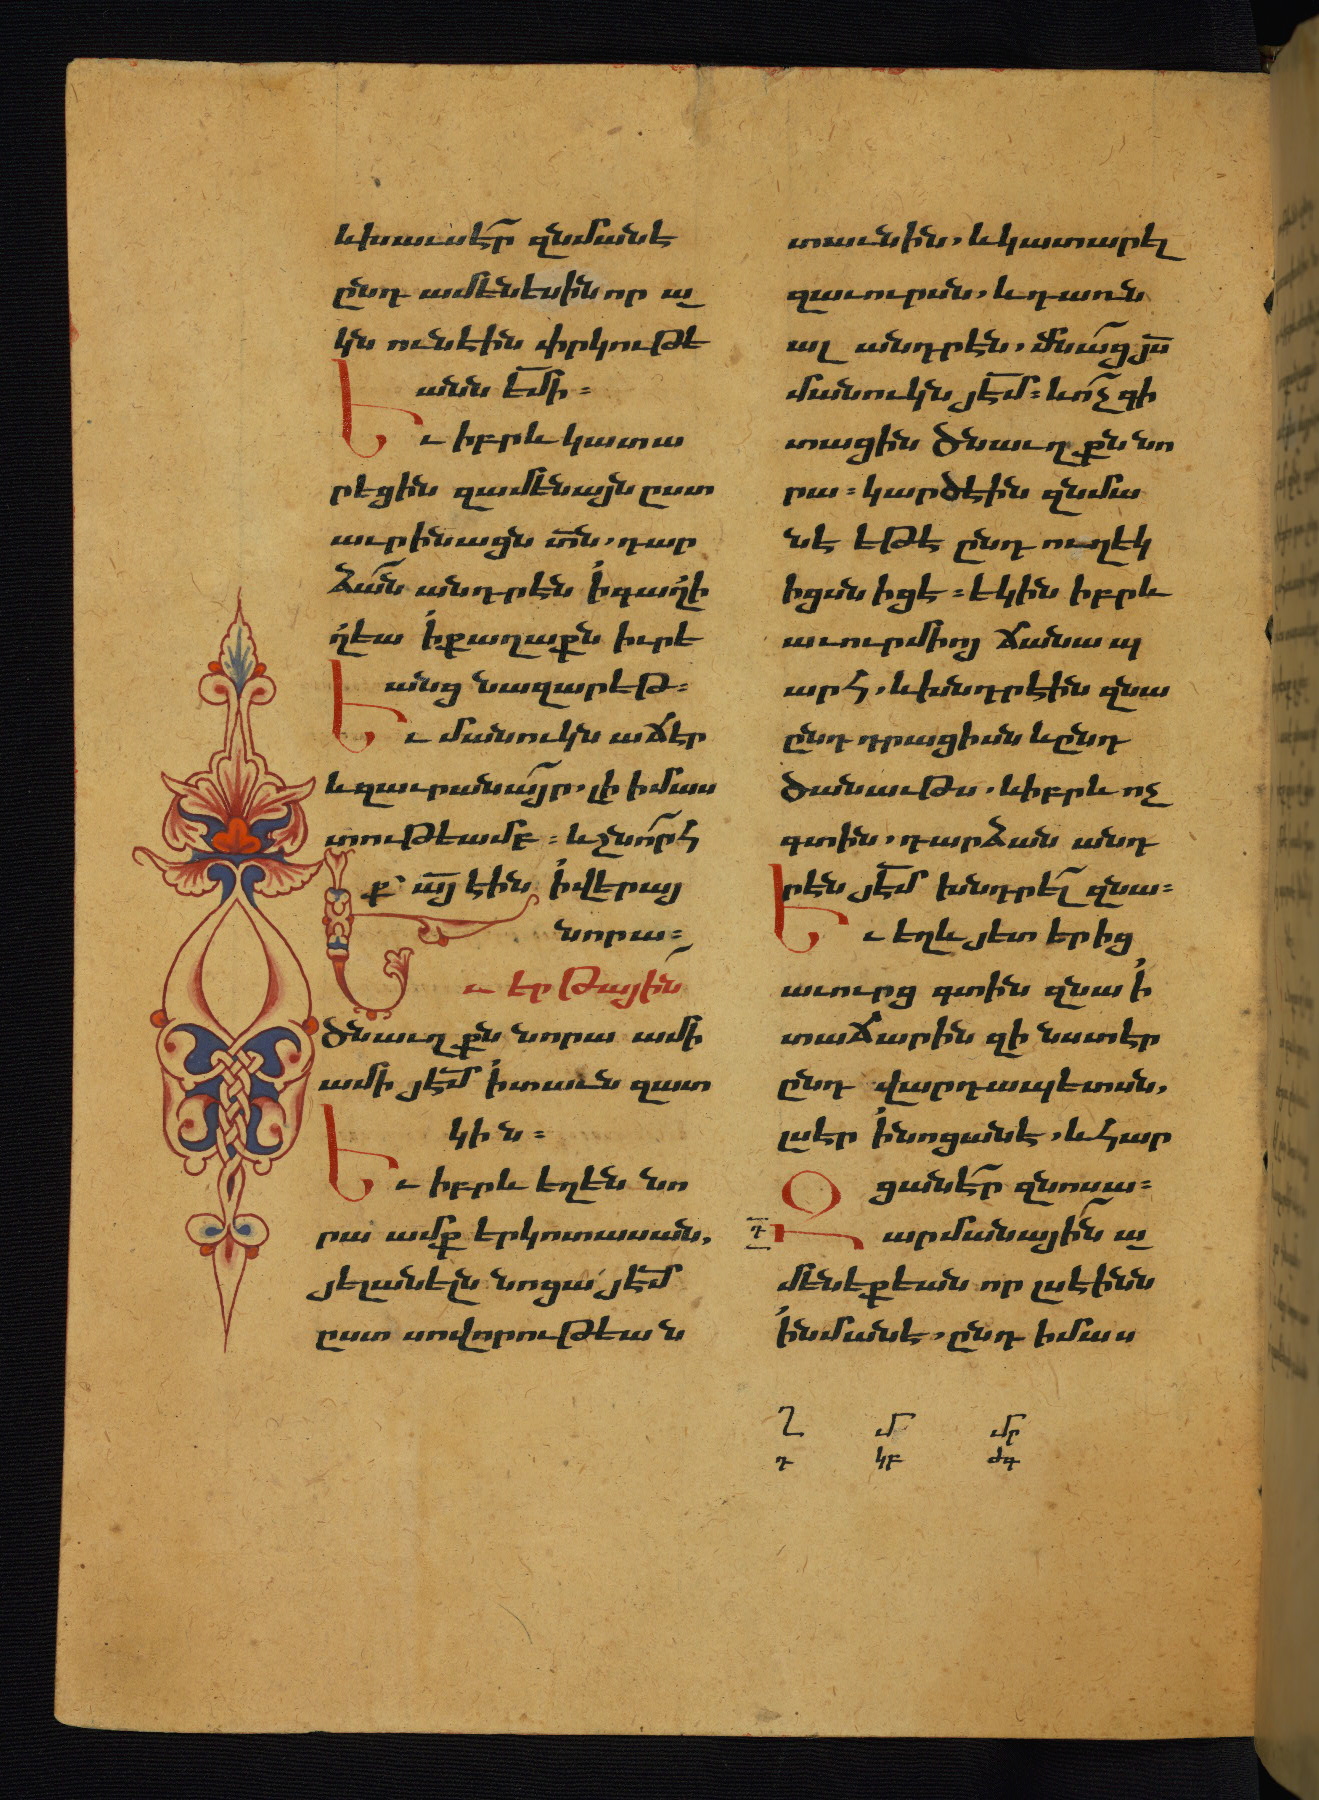 եխաւսէր զնմանէ
ընդ ամենեսինոր ա
կն ունէին փրկութե
անն էմի։
Եւ իբրև կատա
րեցին զամենայն ըստ
աւրինացն տն, դար
ձան անդրէն ի գալի
լեա ի քաղաքն իւրե
անց նազարեթ։
Եւ մանուկն աճէր
և զաւրանայր, լի իմաս
տութեամբ։ և շնորհ
ք այ էին ի վերայ
նորա։
Եւ երթային
ծնաւղքն նորա ամի
ամի յէմ ի տաւն զատ
կին։
Եւ իբրև եղեն նո
րա ամք երկոտասան,
յելանելն նոցա յէմ
ըստ սովորութեան
տաւնին, և կատարել
զաւուրսն, և դառն
ալ անդրէն, մնաց յս
մանուկն յէմ։ և ոչ գի
տացին ծնաւղքն նո
րա։ կարծէին զնմա
նէ եթէ ընդ ուղեկ
իցսն իցէ։ եկին իբրև
աւուրմիոյ ճանապ
արհ, և խնդրէին զնա
ընդ դրացիսն և ընդ
ծանաւթս, և իբրև ոչ
գտին, դարձան անդ
րէն յէմ խնդրել զնա։
Եւ եղև յետ երից
աւուրց գտին զնա ի
տաճարին զի նստէր
ընդ վարդապետսն,
լսէր ի նոցանէ, և հար
ցանէր զնոսա։
դ Զարմանային ա
մենեքեան որ լսէինն
ի նմանէ, ընդ իմաս
Ղ մ մր
դ կբ ժգ